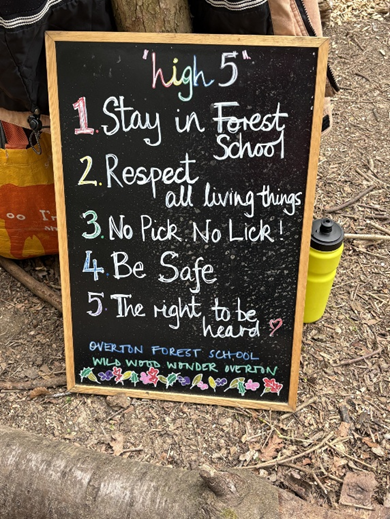 "high 5"
1. Stay in Forest
School
2. Respect
all living things
3. No Pick No Lick!
4. Be Safe
5. The right to be
heard ♡
OVERTON FOREST SCHOOL
WILD WOOD WONDER OVERTON